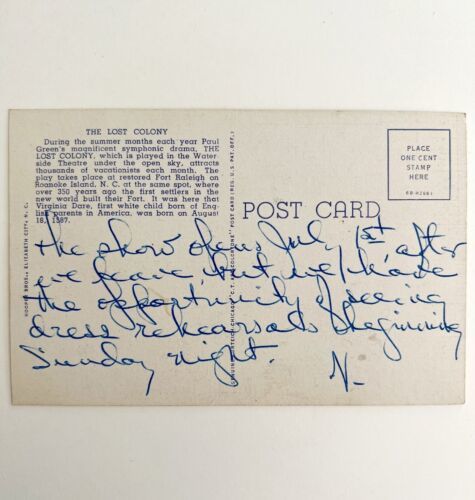 THE LOST COLONY
During the summer months each year Paul
Green's magnificent symphonic drama, THE
LOST COLONY, which is played in the Water-
side Theatre under the open sky, attracts
thousands of vacationists each month. The
play takes place at restored Fort Raleigh on
Roanoke Island, N. C. at the same spot, where
over 350 years ago the first settlers in the
new world built their Fort. It was here that
Virginia Dare, first white child born of Eng-
lish parents in America, was born on August
18, 1587.
POST CARD
PLACE
ONE CENT
STAMP
HERE
6B-H2661
the show opens July 1st, after
we leave, but we'll have
the opportunity of seeing
dress rehearsals beginning
Sunday night.
N-
HOOPER BROS., ELIZABETH CITY, N. C.
GENUINE CURTEICH-CHICAGO "C.T. ART-COLORTONE" POST CARD (REG. U.S. PAT. OFF.)